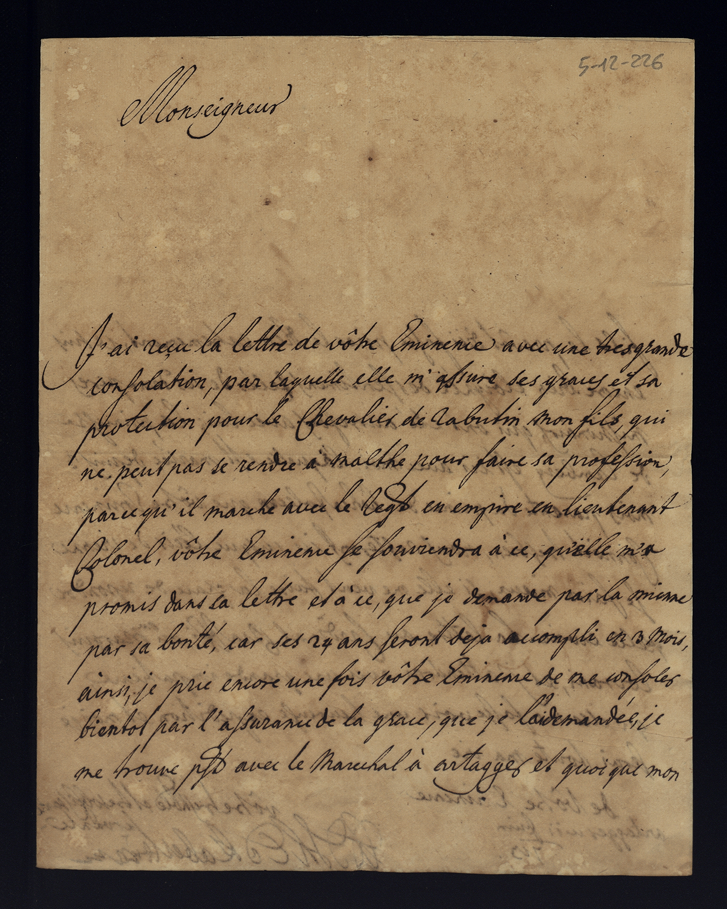 5-12-226
Monseigneur
J'ai reçu la lettre de vôtre Eminence avec une tres grande
consolation, par laquelle elle m'assure ses graces et sa
protection pour le Chevalier de rabutin mon fils, qui
ne peut pas se rendre à malthe pour faire sa profession,
parce qu'il marche avec le Regt en empire en lieutenant
Colonel, vôtre Eminence se souviendra à ce, qu'elle m'a
promis dans sa lettre et à ce, que je demande par la mienne
par sa bonté, car ses 24 ans seront deja accompli en 3 mois,
ainsi, je prie encore une fois vôtre Eminence de me consoler
bientot par l'assurance de la grace, que je lui demandée, je
me trouve avec le Marechal à et quoi que mon